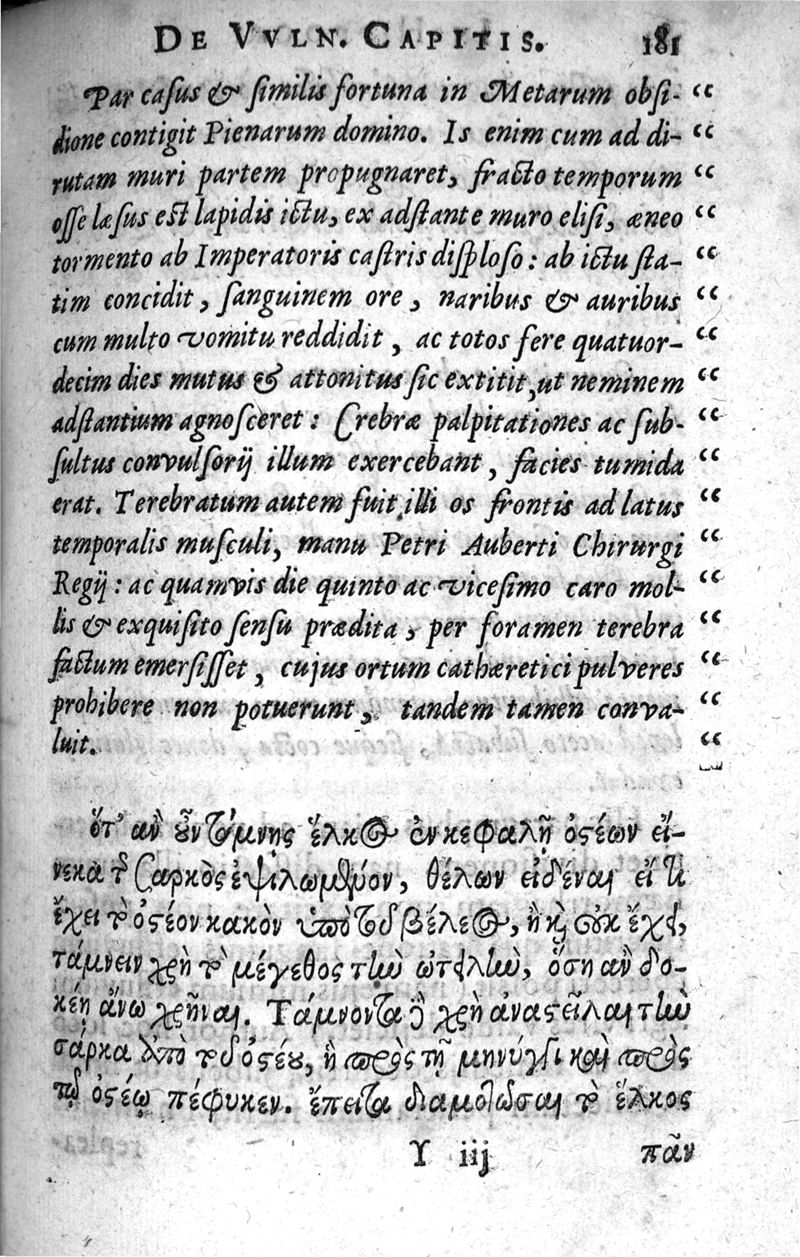 DE VVLN. CAPITIS. 181
Par casus & similis fortuna in Metarum obsi- “
dione contigit Pienarum domino. Is enim cum ad di- “
rutam muri partem propugnaret, fracto temporum “
osse læsus est lapidis ictu, ex adstante muro elisi, æneo “
tormento ab Imperatoris castris disploso: ab ictu sta- “
tim concidit, sanguinem ore, naribus & auribus “
cum multo vomitu reddidit, ac totos fere quatuor- “
decim dies mutus & attonitus sic extitit, ut neminem “
adstantium agnosceret: Crebræ palpitationes ac sub- “
sultus convulsorij illum exercebant, facies tumida “
erat. Terebratum autem fuit illi os frontis ad latus “
temporalis musculi, manu Petri Auberti Chirurgi “
Regij: ac quamvis die quinto ac vicesimo caro mol- “
lis & exquisito sensu prædita, per foramen terebra “
factum emersisset, cujus ortum cathæretici pulveres “
prohibere non potuerunt, tandem tamen conva- “
luit. “
ὅτ' ἂν οὖν τάμνῃς ἕλκος ἐν κεφαλῇ ὀστέων εἵ-
νεκα τῆς σαρκὸς ἐψιλωμένον, θέλων εἰδέναι εἴ τι
ἔχει τὸ ὀστέον κακὸν ὑπὸ τοῦ βέλεος, ἢ καὶ οὐκ ἔχει,
τάμνειν χρὴ τὸ μέγεθος τὴν ὠτειλὴν, ὅση ἂν δο-
κέῃ ἄνω χρῆναι. Τάμνοντα δὲ χρὴ ἀναστεῖλαι τὴν
σάρκα ἀπὸ τοῦ ὀστέου, ᾗ πρὸς τῇ μηνύγγι καὶ πρὸς
τῷ ὀστέῳ πέφυκεν. ἔπειτα διαμοτῶσαι τὸ ἕλκος
Y iij πᾶν